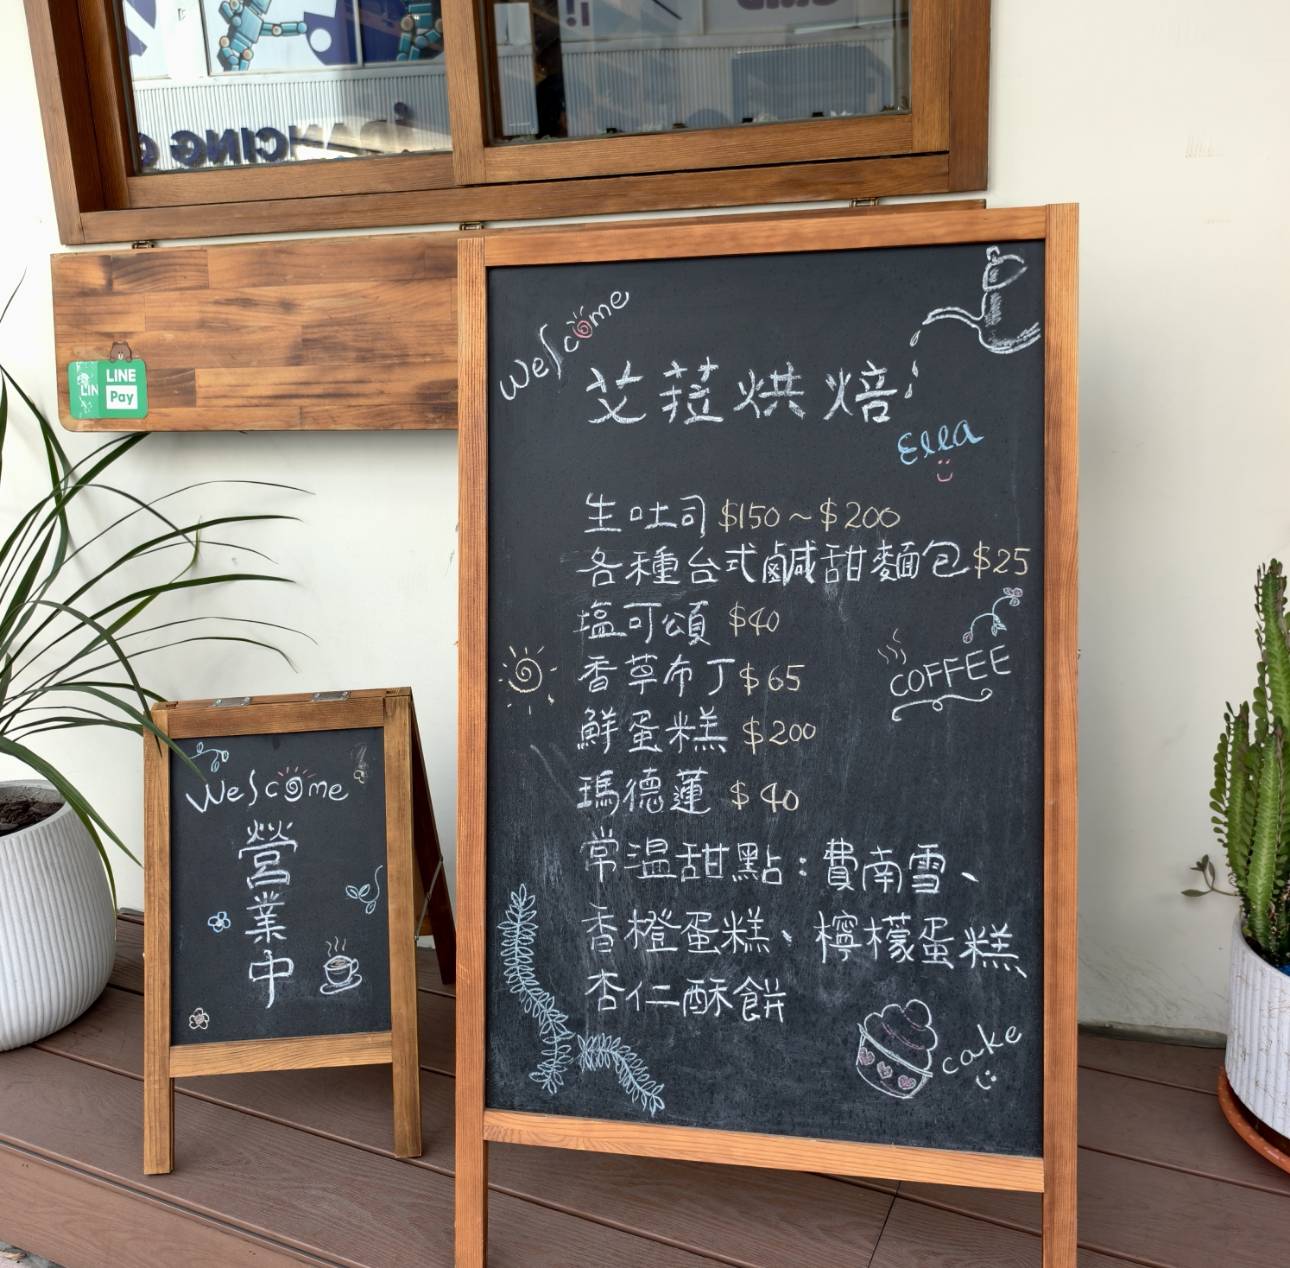 LINE
Pay
Welcome
艾菈烘焙
Ella
生吐司 $150~$200
各種台式鹹甜麵包 $25
塩可頌 $40
香草布丁 $65
鮮蛋糕 $200
瑪德蓮 $40
常温甜點:費南雪、
香橙蛋糕、檸檬蛋糕、
杏仁酥餅
COFFEE
cake
Welcome
營業中